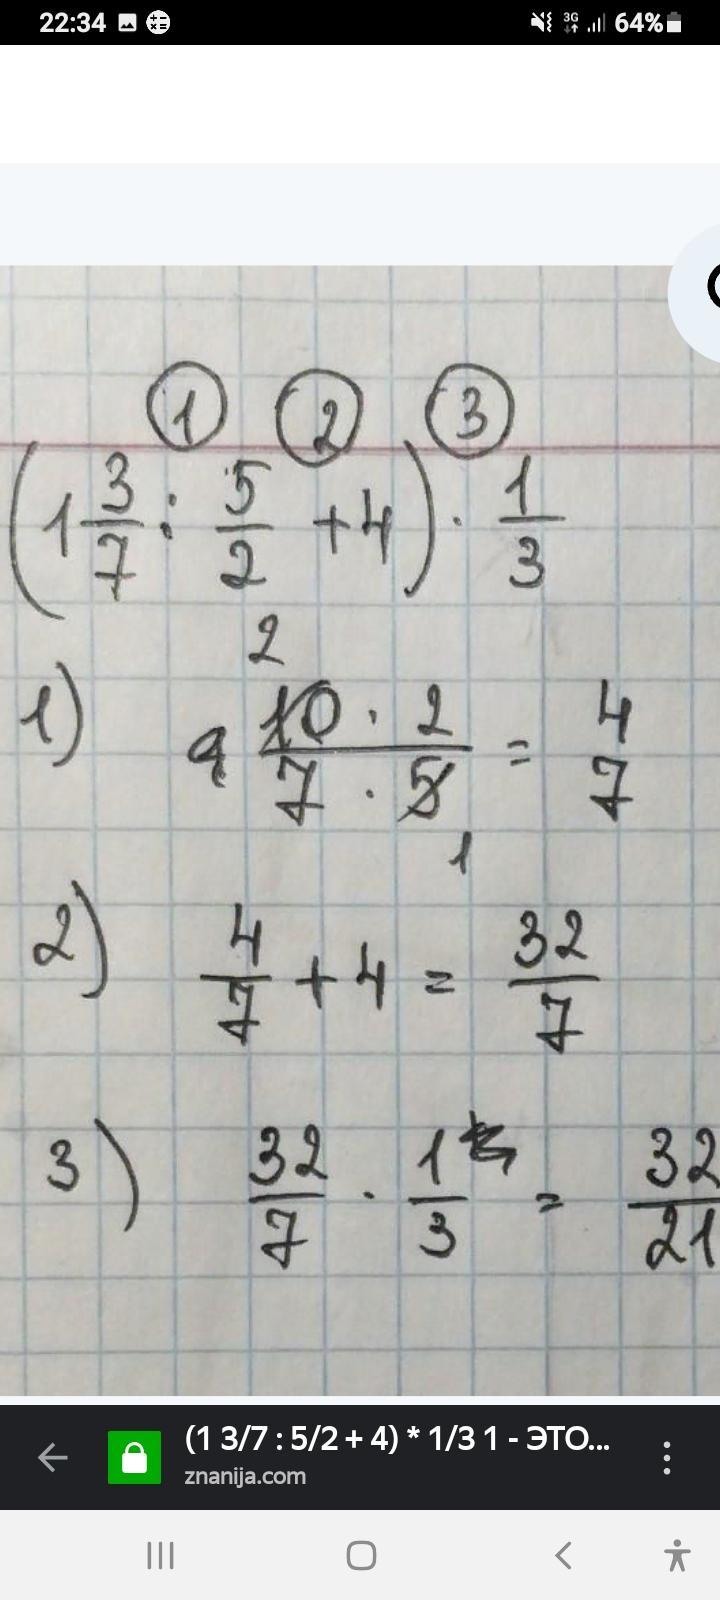 22:34 3G 64%
① ② ③
(1 3/7 : 5/2 + 4) · 1/3
2
1) 10 · 2 / 7 · 5 = 4/7
1
2) 4/7 + 4 = 32/7
3) 32/7 · 1/3 = 32/21
(1 3/7 : 5/2 + 4) * 1/3 1 - ЭТО...
znanija.com